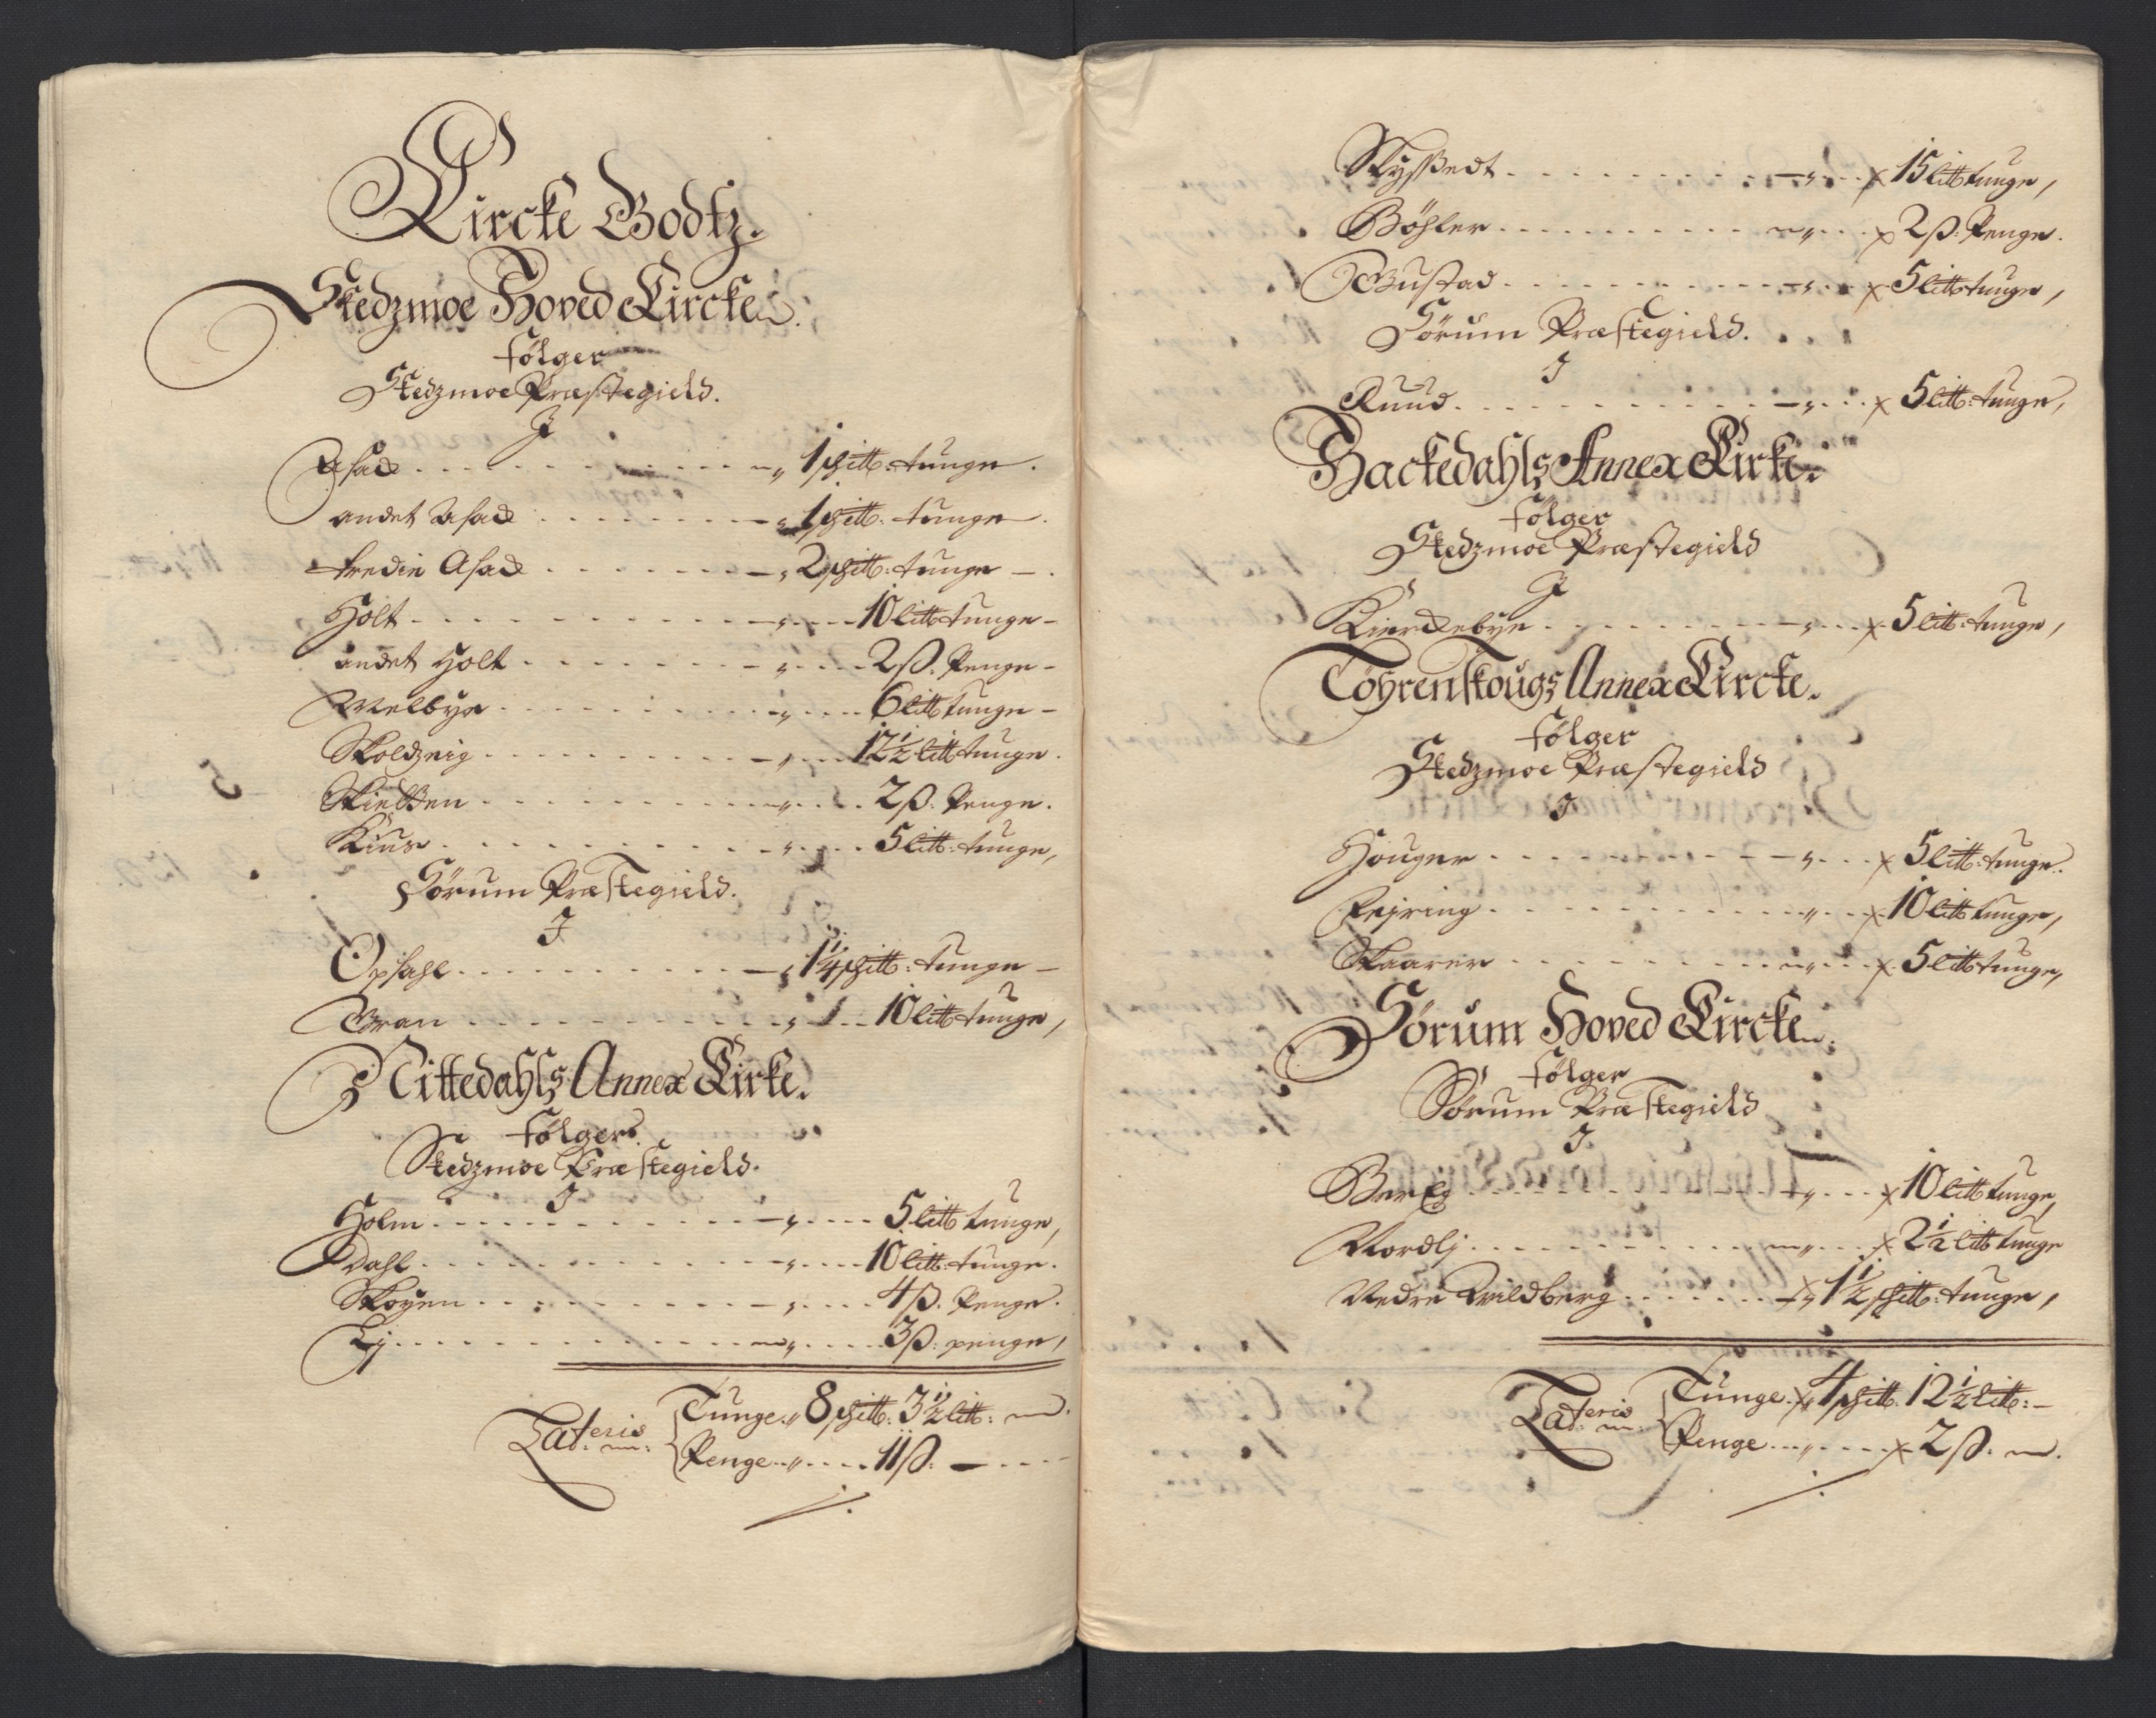 Kircke Godtz.
Skedzmoe Hoved Kircke.
følger
Skedzmoe Præstegield.
I
Asack - - - " 1 schitt: tunge.
andet Asack - - - " 1 schitt: tunge.
tredie Asack - - - " 2 schitt: tunge -
Holt - - - " - - 10 litt tunge -
andet Holt - - - " - - 2 ß: Penge -
Melbye - - - " - - 6 litt tunge -
Skoldzeig - - - " - - 12½ litt tunge.
Skietten - - - " - - 2 ß: Penge.
Kius - - - " - - 5 litt: tunge,
Sørum Præstegield.
I
Opsahl - - - " 1¼ schitt: tunge -
Gran - - - " - - 10 litt tunge,
Nittedahls Annex Kirke.
følger
Skedzmoe Præstegield.
I
Holm - - - " - - 5 litt tunge,
Dahl - - - " - - 10 litt: tunge.
Skoyen - - - " - - 4 ß. Penge.
Ej - - - " - - 3 ß: penge,
Lateris Tunge " 8 schitt: 3½ litt:
Penge " - - 11 ß: -
Skyssedt - - - " - x 15 litt tunge,
Böhler - - - " - x 2 ß: Penge.
Bustad - - - " - x 5 litt tunge,
Sørum Præstegield.
I
Ruud - - - " - x 5 litt: tunge,
Hackedahls Annex Kirke.
følger
Skedzmoe Præstegield
I
Kierckebye - - - " - x 5 litt: tunge,
Löhrenskougs Annex Kircke.
følger
Skedzmoe Præstegield
I
Houger - - - " - x 5 litt: tunge.
Fejring - - - " - x 10 litt tunge,
Skaarer - - - " - x 5 litt tunge,
Sørum Hoved Kircke.
følger
Sørum Præstegield
I
Berg - - - " - x 10 litt tunge,
Nordli - - - " - x 2½ litt tunge
Nedre Qvildberg - - - x " 1½ schitt: tunge,
Lateris Tunge x " 4 schitt. 12½ litt: -
Penge " - - x 2 ß.